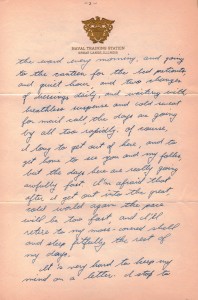 - 2 -
NAVAL TRAINING STATION
GREAT LAKES, ILLINOIS
the ward every morning, and going
to the canteen for the bed patients,
and quiet hour, and two changes
of dressings daily, and waiting with
breathless suspense and cold sweat
for mail call the days are going
by all too rapidly. Of course,
I long to get out of here, and to
get home to see you and my folks
but the days here are really going
awfully fast. I'm afraid that
after I get out into the great,
cold world again the pace
will be too fast, and I'll
retire to my moss-covered shell
and sleep fitfully the rest of
my days.
It's very hard to keep my
mind on a letter. I stop to